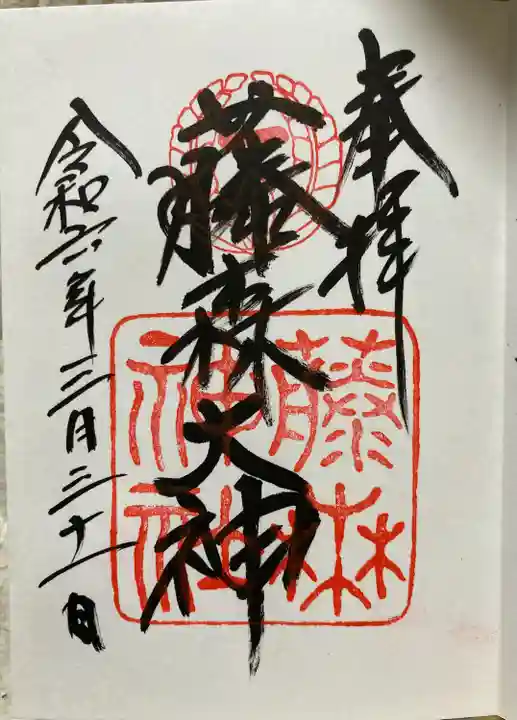 奉拝
藤森大神
令和六年三月三十一日
藤森
神社